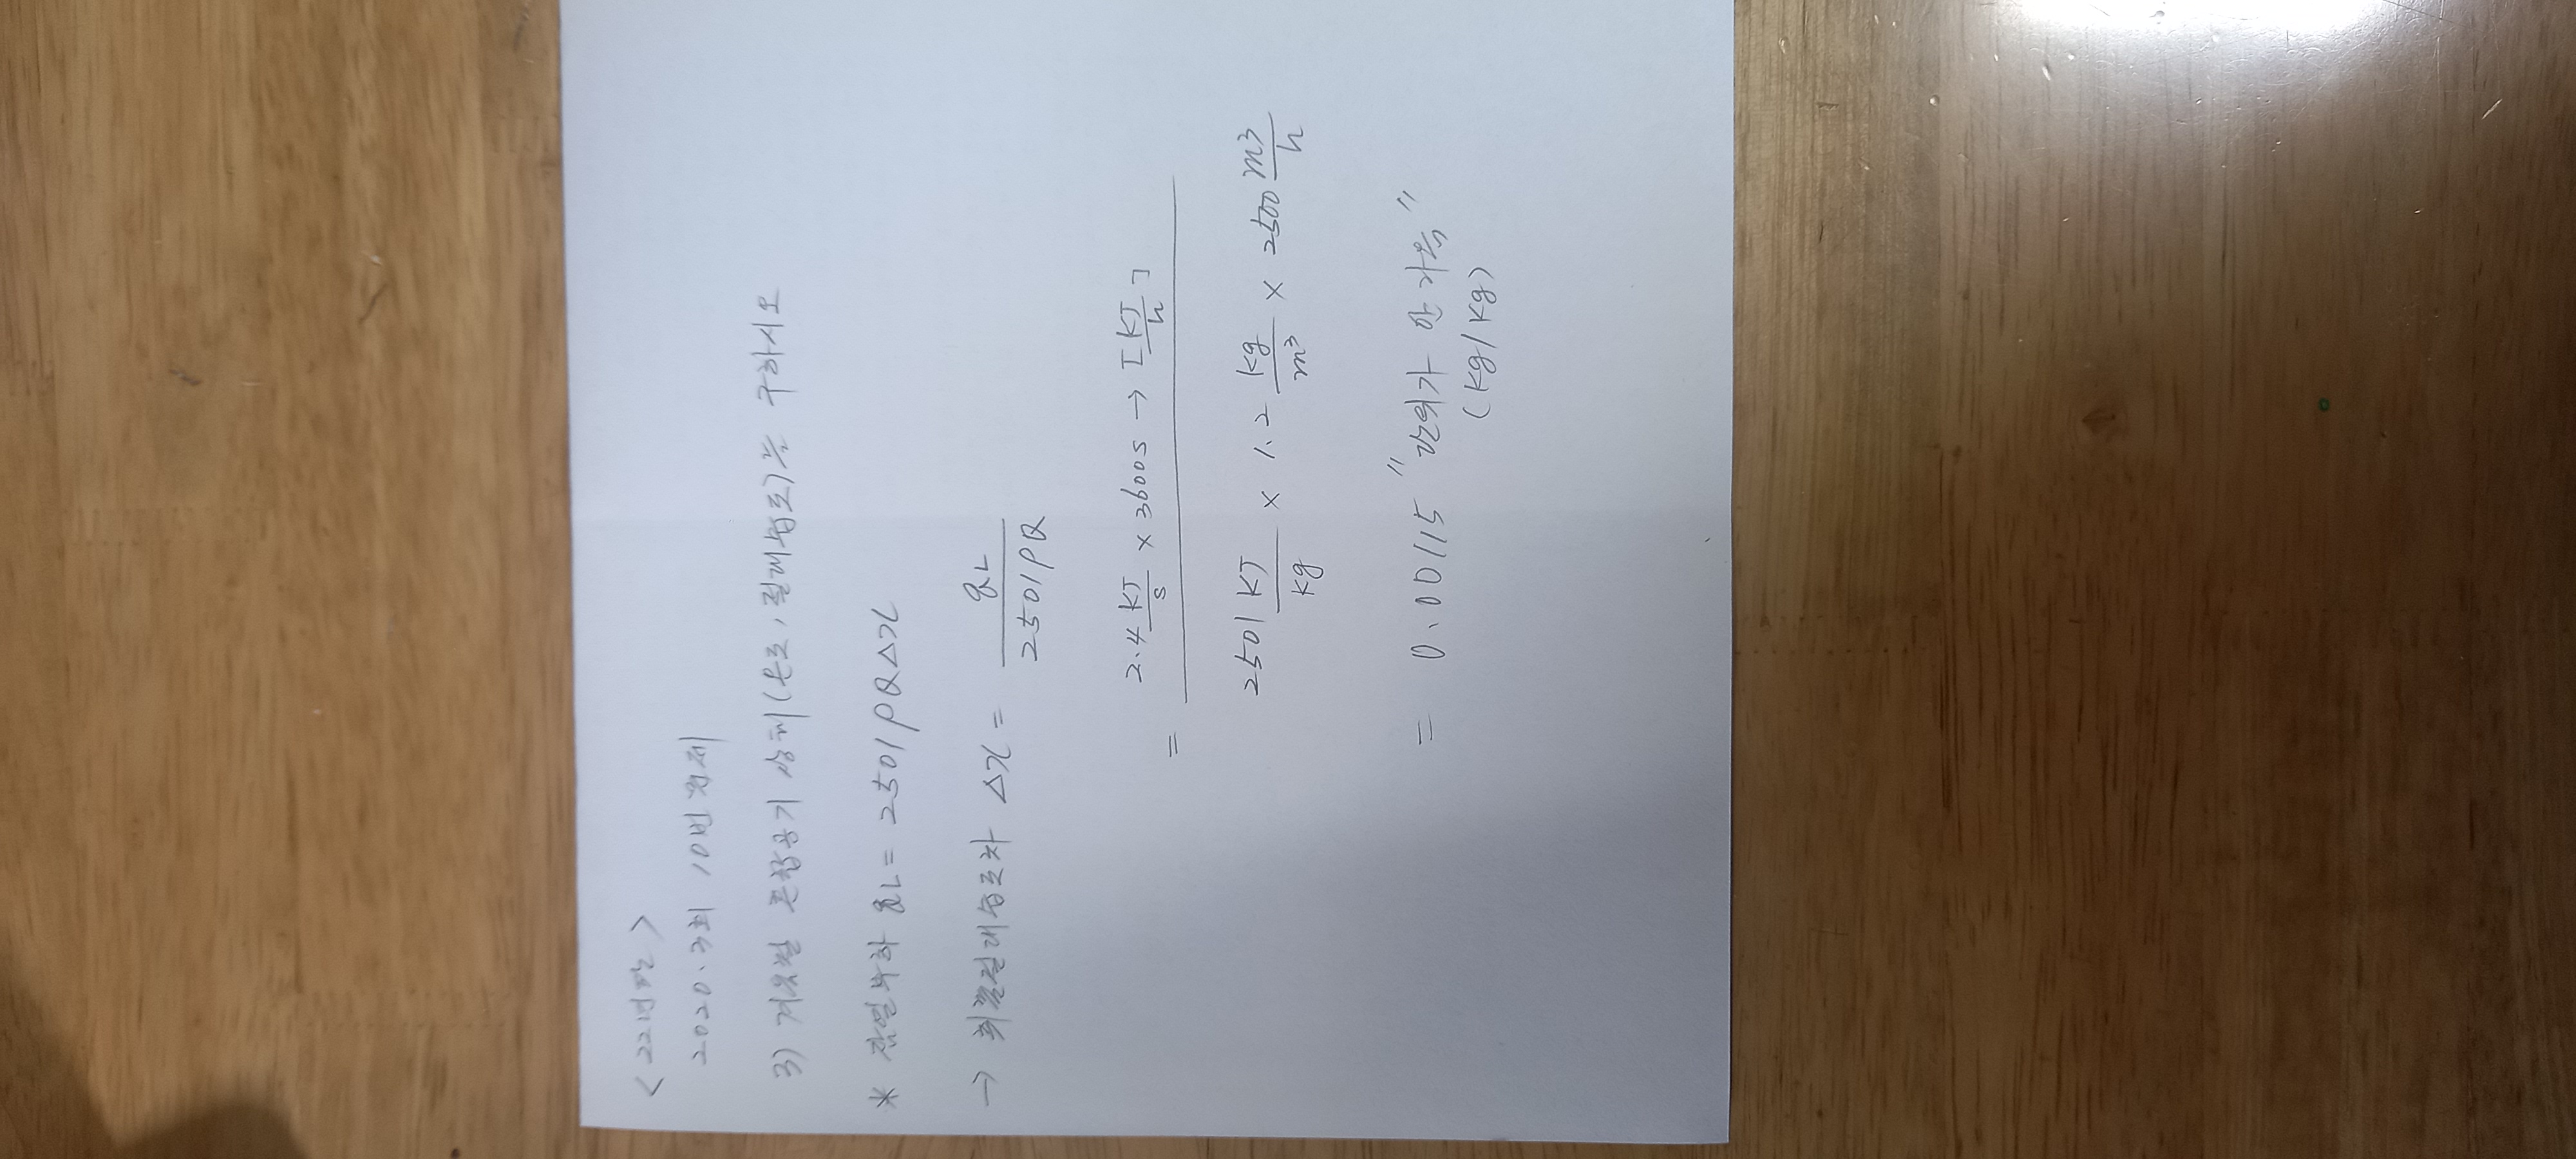 < 22년판 >
2020. 3회 10번 문제
3) 겨울철 혼합공기 상태(온도, 절대습도)는 구하시오
* 잠열부하 qL = 2501ρQΔx
→ 취출절대습도차 Δx = qL / 2501ρQ
= 2.4 KJ/s × 3600s → [KJ/h] / 2501 KJ/kg × 1.2 kg/m³ × 2500 m³/h
= 0.00115 "단위가 안 가욱"
(kg/kg)